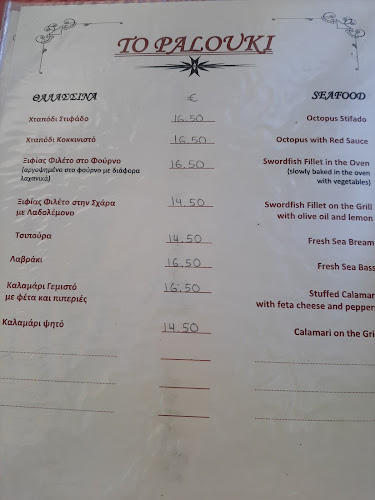 TO PALOUKI
ΘΑΛΑΣΣΙΝΑ € SEAFOOD
Χταπόδι Στιφάδο 16.50 Octopus Stifado
Χταπόδι Κοκκινιστό 16.50 Octopus with Red Sauce
Ξιφίας Φιλέτο στο Φούρνο 16.50 Swordfish Fillet in the Oven
(αργοψημένο στο φούρνο με διάφορα (slowly baked in the oven
λαχανικά) with vegetables)
Ξιφίας Φιλέτο στην Σχάρα 14.50 Swordfish Fillet on the Grill
με Λαδολέμονο with olive oil and lemon
Τσιπούρα 14.50 Fresh Sea Bream
Λαβράκι 16.50 Fresh Sea Bass
Καλαμάρι Γεμιστό 16.50 Stuffed Calamar
με φέτα και πιπεριές with feta cheese and peppers
Καλαμάρι ψητό 14.50 Calamari on the Gri